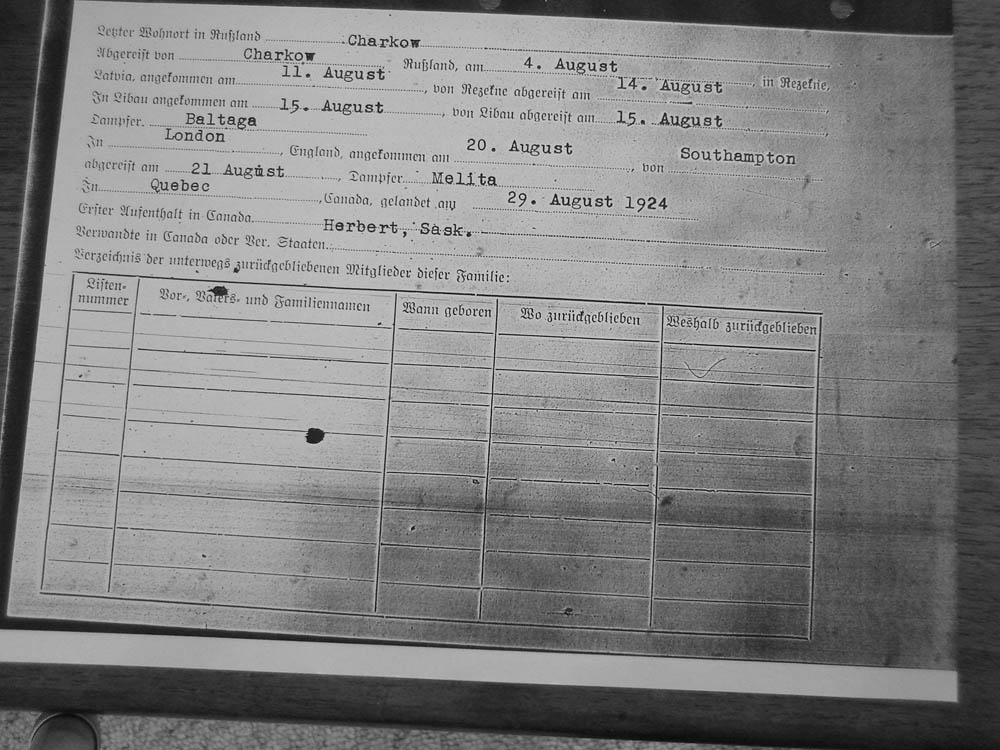 Letzter Wohnort in Rußland Charkow
Abgereist von Charkow Rußland, am 4. August in Rezekne,
Latvia, angekommen am 11. August, von Rezekne abgereist am 14. August,
In Libau angekommen am 15. August, von Libau abgereist am 15. August
Dampfer. Baltaga
In London, England, angekommen am 20. August, von Southampton
abgereist am 21 August, Dampfer Melita
In Quebec, Canada, gelandet am 29. August 1924
Erster Aufenthalt in Canada Herbert, Sask.
Verwandte in Canada oder Ver. Staaten.
Verzeichnis der unterwegs zurückgebliebenen Mitglieder dieser Familie:
Listen-nummer Vor-, Vaters- und Familiennamen Wann geboren Wo zurückgeblieben Weshalb zurückgeblieben